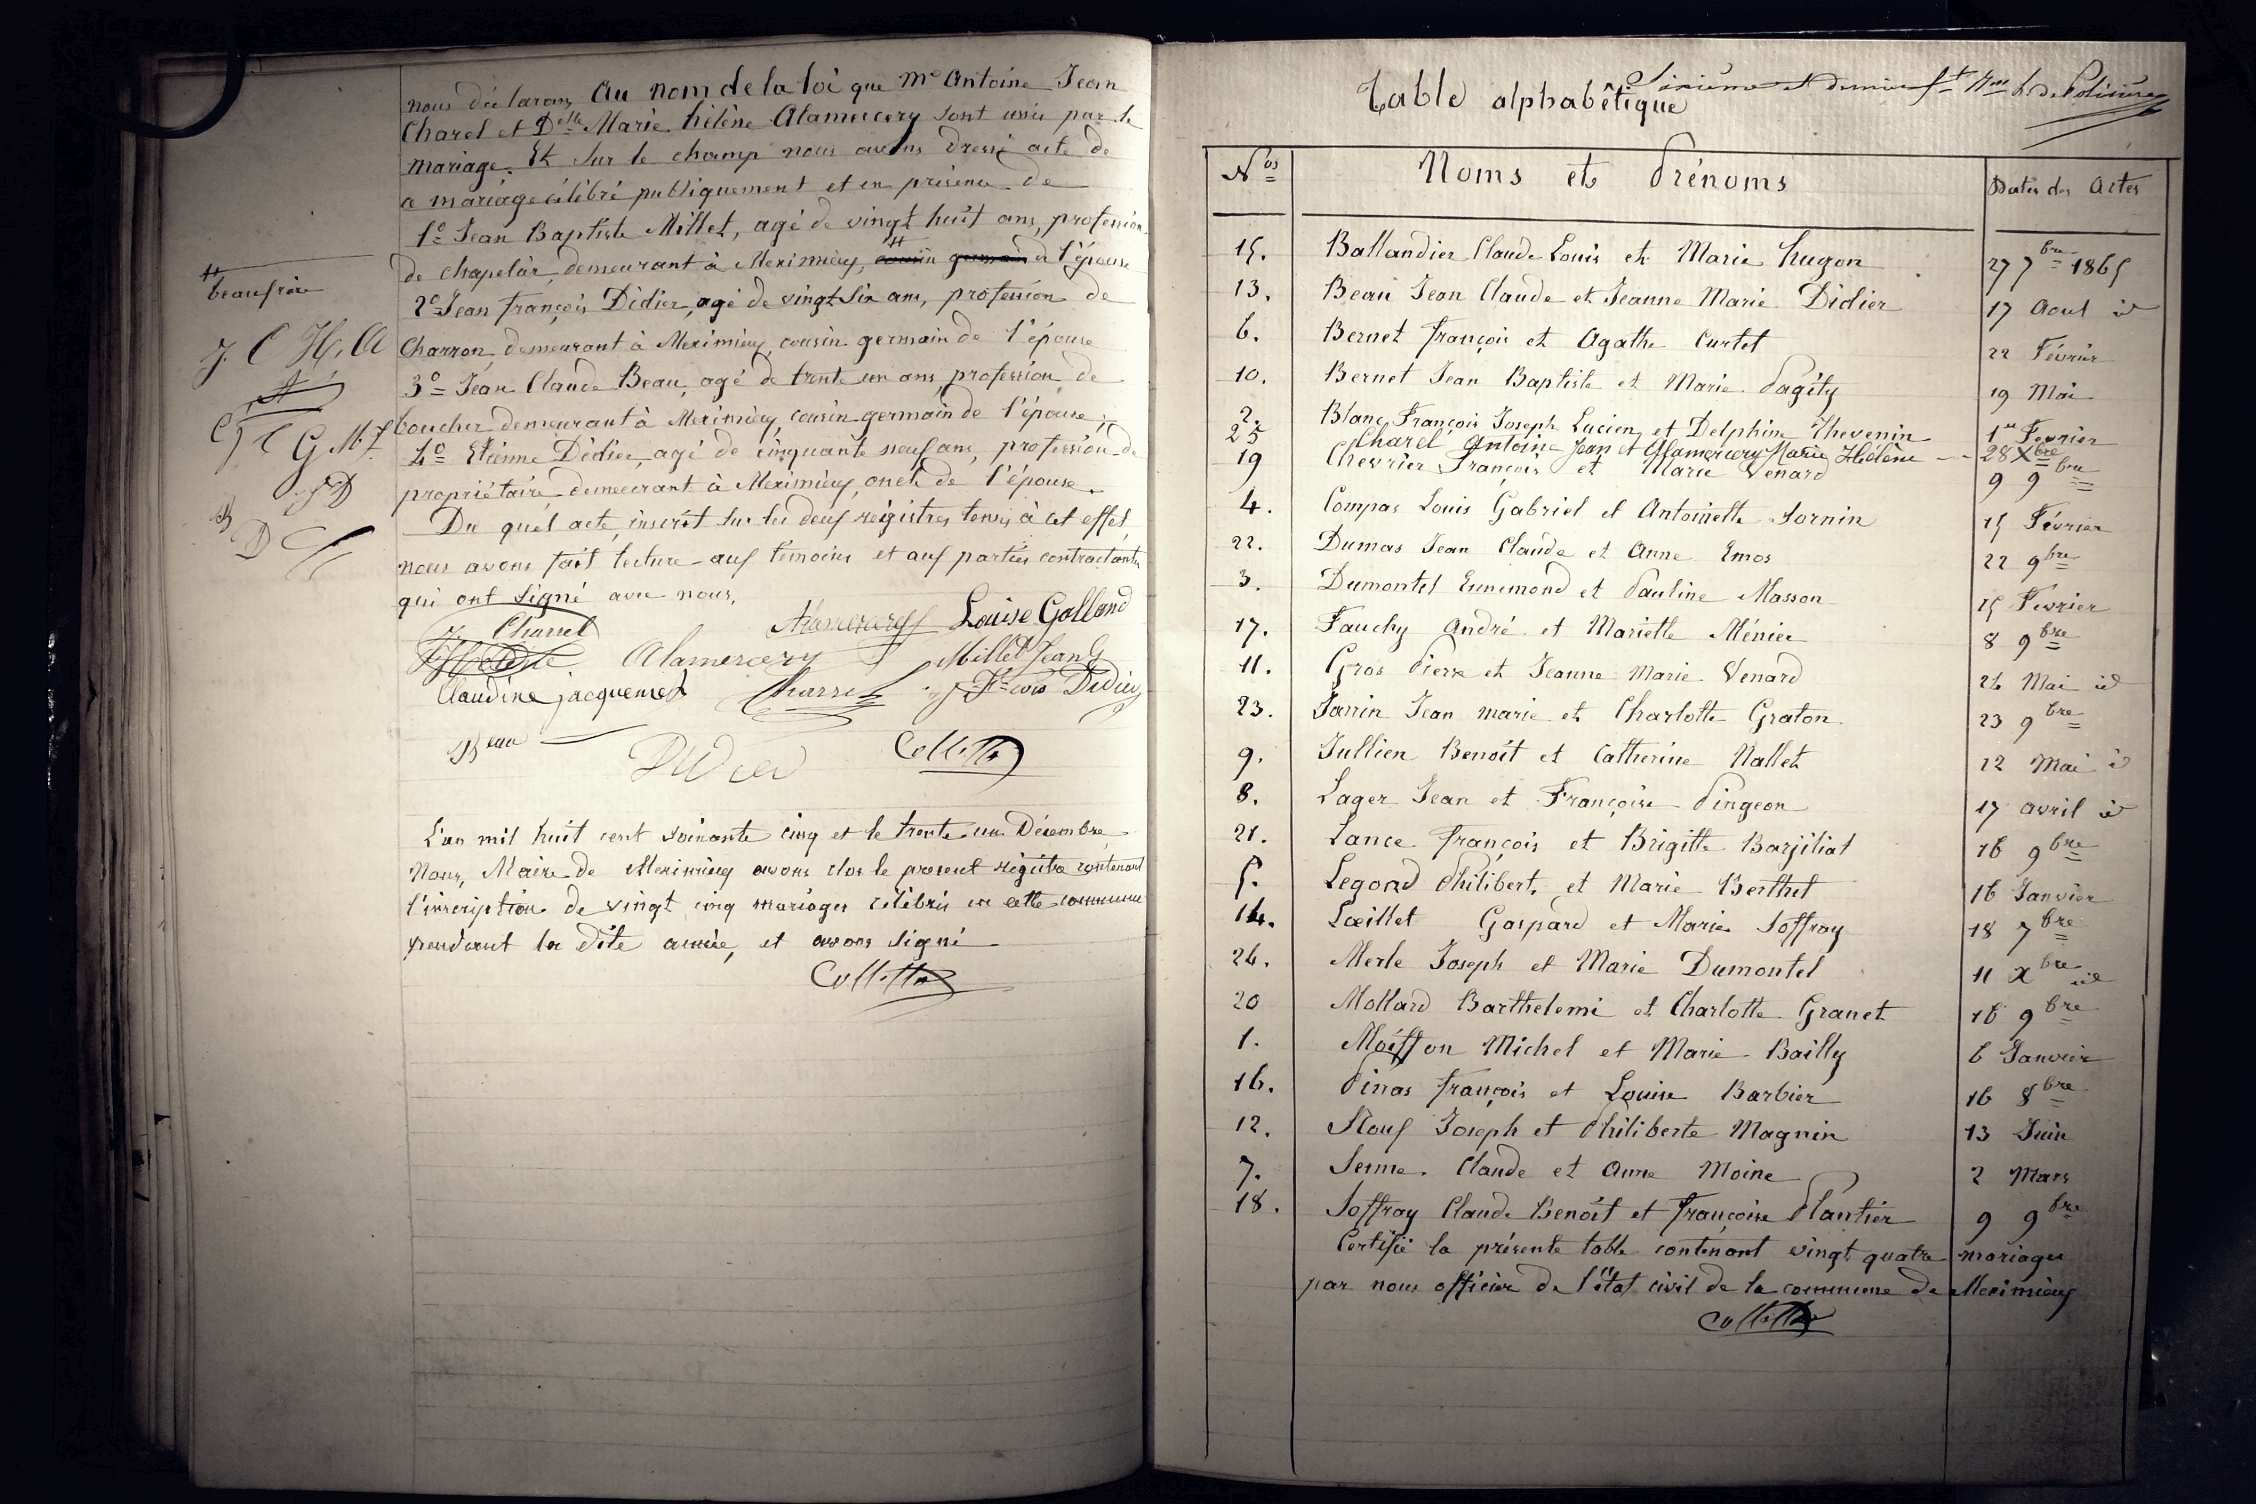 nous déclarons Au nom de la loi que Mr Antoine Jean
Charel et Delle Marie hélène Alamercery sont unis par le
mariage. Et sur le champ nous avons dressé acte de
ce mariage célébré publiquement et en présence de
1º Jean Baptiste Millet, agé de vingt huit ans, profession
de chapelier, demeurant à Meximieux, cousin germain à l'épouse
2º Jean françois Didier, agé de vingt six ans, profession de
Charron, demeurant à Meximieux, cousin germain de l'épouse
3º Jean Claude Beau, agé de trente un ans, profession de
boucher demeurant à Meximieux, cousin germain de l'épouse;
4º Etienne Didier, agé de cinquante neuf ans, profession de
propriétaire demeurant à Meximieux, oncle de l'épouse.
Du quel acte, inscrit sur les deux registres tenus à cet effet,
nous avons fait lecture aux témoins et aux parties contractantes
qui ont signé avec nous.
beaufrère
J. C H. A
G M. J.
J D
B
D C
J. Charrel Alamercery Louise Golland
Alamercery Millet Jean
Claudine jacquemet Charrel fcois Didier
Beau Didier Collette
L'an mil huit cent soixante cinq et le trente un Décembre
Nous, Maire de Meximieux avons clos le present régistre contenant
l'inscription de vingt cinq mariages célébrés en cette commune
pendant la dite année, et avons signé
Collette
Table alphabêtique
Sixième et dernier ft
Nos Noms et Prénoms Dates des Actes
15. Ballandier Claude Louis et Marie hugon 27 7bre 1865
13. Beau Jean Claude et Jeanne Marie Didier 17 Aout id
6. Bernet françois et Agathe Curtet 22 Février
10. Bernet Jean Baptiste et Marie Pagély 19 Mai
2. Blanc François Joseph Lucien et Delphine Thevenin 1er Fevrier
25 Charel Antoine Jean et Alamercery Marie Hélène -- 28 Xbre
19 Chevrier François et Marie Venard 9 9bre
4. Compas Louis Gabriel et Antoinette Sornin 15 Février
22. Dumas Jean Claude et Anne Emos 22 9bre
3. Dumontel Ennemond et Pauline Masson 15 Fevrier
17. Fauchy André et Mariette Ménier 8 9bre
11. Gros Pierre et Jeanne Marie Venard 24 Mai id
23. Janin Jean marie et Charlotte Graton 23 9bre
9. Jullien Benoit et Catherine Nallet 12 Mai id
8. Lager Jean et Françoise Pingeon 17 avril id
21. Lance françois et Brigitte Barjiliat 16 9bre
5. Legord Philibert, et Marie Berthet 16 Janvier
14. Lœillet Gaspard et Marie Soffray 18 7bre
24. Merle Joseph et Marie Dumontel 11 Xbre id
20 Mollard Barthelemi et Charlotte Granet 16 9bre
1. Moiffon Michel et Marie Bailly 6 Janvier
16. Pinas françois et Louise Barbier 16 8bre
12. Roux Joseph et Philiberte Magnin 13 Juin
7. Senne. Claude et Anne Moine 2 Mars
18. Soffray Claude Benoît et françoise Plantier 9 9bre
Certifié la présente table contenant vingt quatre mariages
par nous officier de l'état civil de la commune de Meximieux
Collette